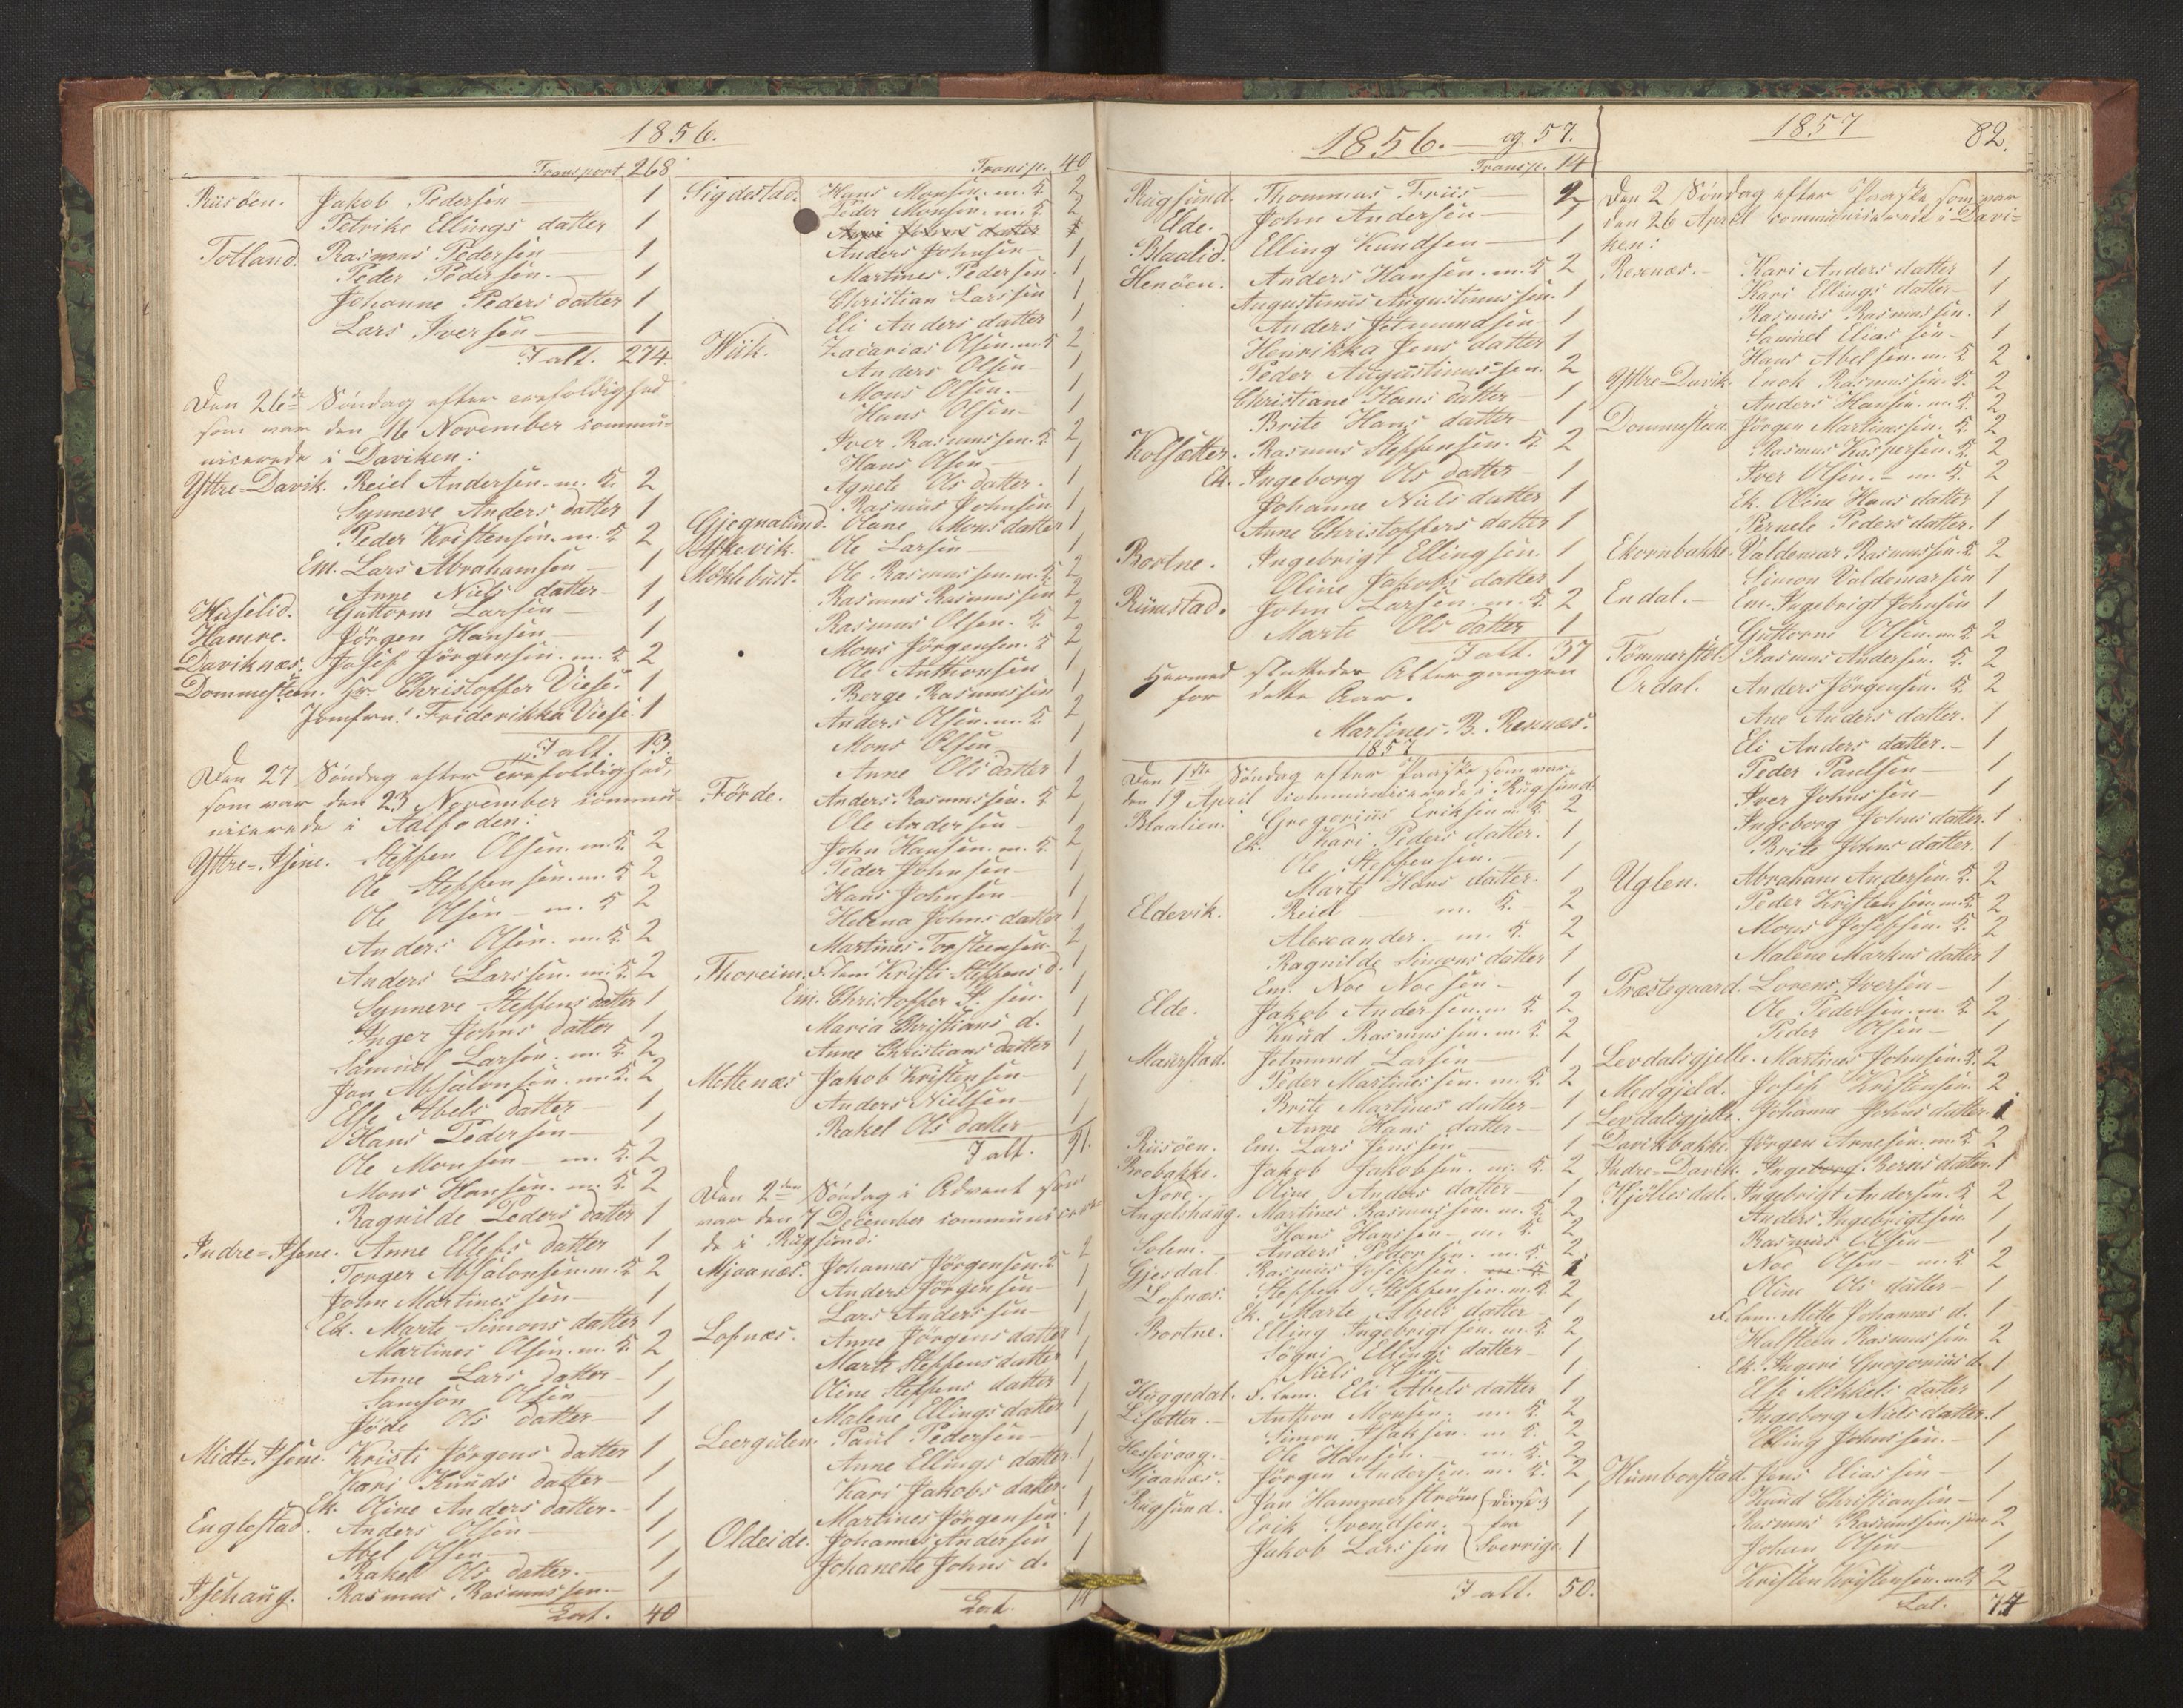 1856.
Transport 268
Riisöen. Jakob Pedersen 1
Petrike Ellings datter 1
Totland. Rasmus Pedersen 1
Peder Pedersen. 1
Johanne Peders datter 1
Lars Iversen 1
I alt. 274
Den 26de Söndag efter
som var den 16 November commu-
nicerede i Daviken:
Yttre-Davik. Reiel Andersen. m. K. 2
Synneve Anders datter 1
Peder Kristensen. m. K. 2
Em. Lars Abrahamsen 1
Anne Niels datter 1
Huselid. Guttorm Larsen 1
Hamre. Jörgen Hansen 1
Daviknæs. Josef Jörgensen. m. K. 2
Dommesteen. Hr. Christopher Viese. 1
Jomfru. Friderikka Viese. 1
I alt. 13.
Den 27 Söndag efter Trefoldighed,
som var den 23 November commu-
nicerede i Aalfoden:
Yttre-Isene. Steffen Olsen. m. K. 2
Ole Steffensen. m. K. 2
Ole Olsen - m. K. 2
Anders Olsen. m. K. 2
Anders Larssen. m. K. 2
Synneve Steffens datter 1
Inger Johns datter 1
Samuel Larsen. m. K. 2
Jon Absalonsen. m. K. 2
Else Abels datter 1
Hans Pedersen 1
Ole Monsen - m. K. 2
Mons Hansen. m. K. 2
Ragnilde Peders datter 1
Indre-Isene. Anne Ellefs datter 1
Torger Absalonsen. m. K. 2
John Martinessen 1
Ek. Marte Simons datter 1
Martines Olsen. m. K. 2
Anne Lars datter 1
Samson Olsen 1
Jöde Ols datter 1
Midt-Isene. Kristi Jörgens datter 1
Kari Knuds datter 1
Ek. Oline Anders datter. 1
Englestad. Anders Olsen 1
Abel Olsen 1
Rakel Ols datter. 1
Isehaug. Rasmus Rasmussen. 1
Lat. 40
Transp. 40
Sigdestad. Hans Monsen. m. K. 2
Peder Monsen. m. K. 2
Anders Johnsen 1
Martines Pedersen. 1
Christian Larssen 1
Eli Anders datter 1
Wiik. Zacarias Olsen. m. K. 2
Anders Olsen 1
Mons Olsen. 1
Hans Olsen 1
Iver Rasmussen. K. 2
Hans Olsen 1
Agnete Ols datter. 1
Rasmus Johnsen 1
Gjegnalund. Olane Mons datter 1
Ole Larsen 1
Myklebust. Ole Rasmussen. m. K. 2
Rasmus Rasmussen 2
Rasmus Olsen. K. 2
Mons Jörgensen. K. 2
Ole Anthonsen 1
Borge Rasmussen 1
Anders Olsen. m. K. 2
Mons Olsen 1
Anne Ols datter 1
Förde. Anders Rasmussen. K. 2
Ole Andersen 1
John Hansen. m. K. 2
Peder Johnsen 1
Hans Johnsen 1
Helena Johns datter 1
Martines Torsteensen. 2
Thoreim. F. lem Kristi Steffens d. 1
Em. Christoffer S. sen. 1
Maria Christians d. 1
Anne Christians datter 1
Mettenæs Jakob Kristensen 1
Anders Nielsen 1
Rakel Ols datter 1
I alt. 91.
Den 2den Söndag i Advent som
var den 7 December communicere-
de i Rugsund:
Mjaanæs. Johannes Jörgensen. K. 2
Anders Jörgensen 1
Lars Anderssen 1
Lofnæs. Anne Jörgens datter 1
Marte Steffens datter 1
Oline Steffens datter 1
Malene Ellings datter 1
Leergulen. Paul Pedersen 1
Anne Ellings datter 1
Kari Jakobs datter. 1
Martines Jörgensen 1
Oldeide. Johannes Andersen 1
Johanette Johns d. 1
Lat. 14
1856. og 57.
Transp. 14
Rugsund. Thommas Friis 2
Elde. John Andersen 1
Blaalid. Elling Knudsen 1
Henöen. Anders Hansen. m. K. 2
Augustinus Augustinussen. 1
Anders Jetmundsen 1
Henrikka Jens datter 1
Peder Augustinussen. 2
Christiane Hans datter 1
Brite Hans datter 1
Kolsætter. Rasmus Steffensen. K. 2
Ek. Ingeborg Ols datter 1
Johanne Niels datter 1
Anne Christoffers datter 1
Bortne. Ingebrigt Ellingsen. 1
Oline Jakobs datter 1
Rimstad. John Larsen. m. K. 2
Marte Ols datter 1
I alt. 37
Hermed sluttedes Altergangen
for dette Aar.
Martines B. Rexnæs.
1857
Den 1ste Söndag efter Paaske som var
den 19 April communicerede i Rugsund:
Blaalien. Gregorius Eriksen m. K. 2
Ek. Kari Peders datter. 1
Ole Steffensen. 1
Marte Hans datter. 1
Eldevik. Reiel m. K. 2
Alexander. m. K. 2
Ragnilde Simons datter 1
Em. Noe Noesen 1
Elde. Jakob Andersen. m. K. 2
Knud Rasmussen. m. K. 2
Maurstad. Jetmund Larsen 1
Peder Martinessen. m. K. 2
Brite Martines datter 1
Anne Hans datter 1
Riisöen. Em. Lars Jenssen 1
Brobakke. Jakob Jakobsen. m. K. 2
Nore. Oline Anders datter 1
Angelshaug. Martines Rasmussen. m. K. 2
Hans Hanssen. m. K. 2
Solem. Anders Pedersen. m. K. 2
Gjesdal. Rasmus Josefsen. m. K. 1
Lofnæs. Steffen Steffensen. m. K. 2
Ek. Marte Abels datter 1
Bortne. Elling Ingebrigtsen. m. K. 2
Sögni Ellings datter 1
Niels Olsen 1
Huggedal. F. lem. Eli Abels datter 1
Lisætter. Anthon Monsen. m. K. 2
Simon Isaksen. m. K. 2
Hessevaag. Ole Hansen. m. K. 2
Mjaanæs. Jörgen Andersen. m. K. 2
Rugsund. Jan Hammerström disse 1
Erik Svendsen. fra 1
Jakob Larssen Sverrige. 1
I alt. 50.
1857 82.
Den 2 Söndag efter Paaske som var
den 26 April communicerede i Davi-
ken:
Rexnæs. Kari Anders datter 1
Kari Ellings datter 1
Rasmus Rasmussen. 1
Samuel Eliassen 1
Hans Abelsen. m. K. 2
Yttre-Davik. Enok Rasmussen. K. 2
Anders Hansen. m. K. 2
Dommesteen. Jörgen Martinessen. K. 2
Rasmus Kaspersen. K. 2
Iver Olsen. m. K. 2
Ek. Oline Hans datter 1
Pernele Peders datter. 1
Ekornbakke. Valdemar Rasmussen. K. 2
Simon Valdemarsen 1
Endal. Em. Ingebrigt Johnsen 1
Guttorm Olsen. m. K. 2
Tömmerstöl. Rasmus Andersen. K. 2
Ordal. Anders Jörgensen. K. 2
Ane Anders datter. 1
Eli Anders datter. 1
Peder Paulsen 1
Iver Johnssen 1
Ingeborg Johns datter. 1
Brite Johns datter. 1
Uglen. Abraham Andersen. K. 2
Peder Kristensen. m. K. 2
Mons Josefsen. K. 2
Malene Markus datter 1
Præstegaard. Lorens Iversen 1
Ole Pedersen. m. K. 2
Peder Olsen 1
Levdalsgjelle. Martines Johnsen. K. 2
Medgjeld. Josef Kristensen. 2
Levdalsgjelle. Johanne Johns datter. 1
Davikbakke. Jörgen Arnesen. m. K. 2
Indre-Davik. Ingeborg Berns datter. 1
Hjöllesdal. Ingebrigt Andersen. K. 2
Anders Ingebrigtsen. 1
Rasmus Olsen 1
Noe Olsen - m. K. 2
Oline Ols datter 1
F. lem. Mette Johannes d. 1
Halsteen Rasmussen 2
Ek. Ingeri Gregorius d. 1
Else Mikkels datter 1
Ingeborg Niels datter. 1
Elling Johnssen. 1
Humborstad. Jens Eliassen 1
Knud Christiansen 1
Rasmus Rasmussen. 2
Johan Olsen 1
Kristen Kristensen. m. K. 2
Lat. 74